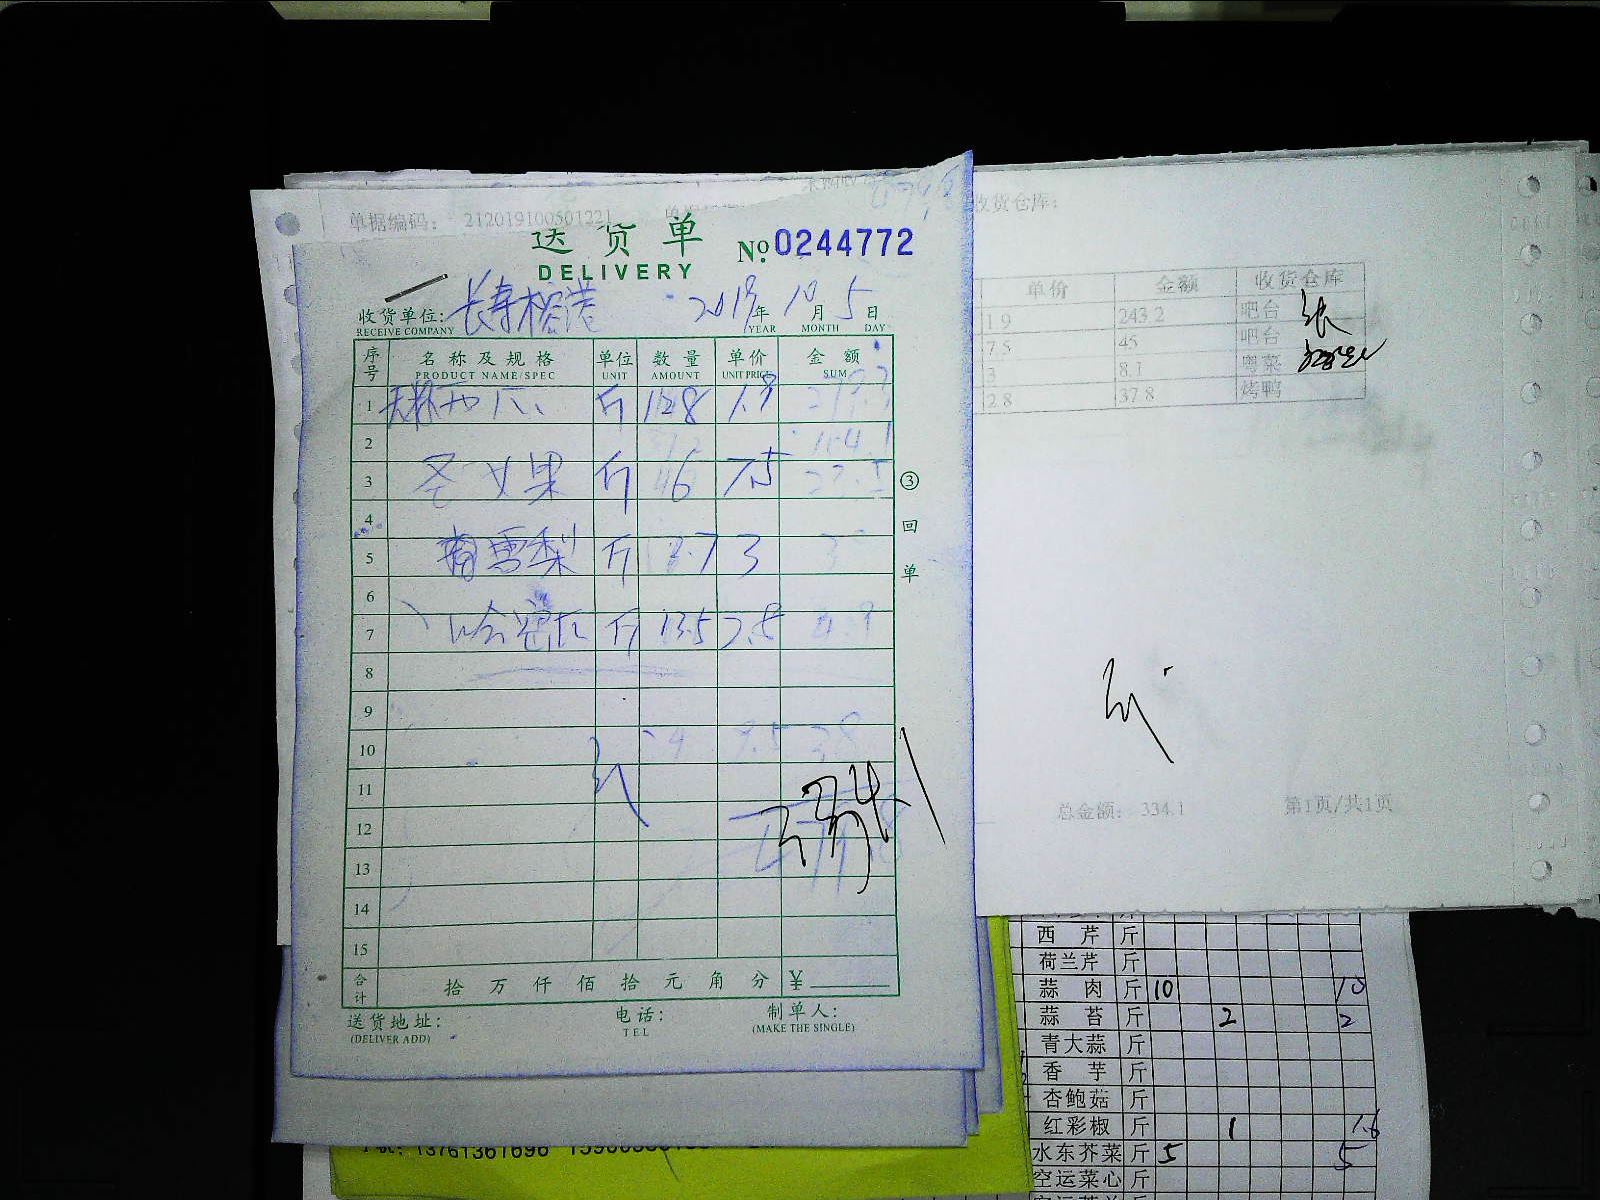 单据编码： 212019100501221 收货仓库：
送货单 № 0244772
DELIVERY
收货单位: 长寿榕港 2019年 10月 5日
RECEIVE COMPANY YEAR MONTH DAY
序号 名称及规格 单位 数量 单价 金额
PRODUCT NAME/SPEC UNIT AMOUNT UNIT PRICE SUM
1 斤 128 1.9
2
3 圣女果 斤 6 7.5
4
5 雪梨 斤 2.7 3
6
7 哈密瓜 斤 13.5 2.8
8
9
10
11
12
13
14
15
合计 拾 万 仟 佰 拾 元 角 分 ¥
送货地址: 电话: 制单人:
(DELIVER ADD) TEL (MAKE THE SINGLE)
③ 回单
单价 金额 收货仓库
1.9 243.2 吧台
7.5 45 吧台
3 8.1 粤菜
2.8 37.8 烤鸭
总金额： 334.1 第1页/共1页
西芹 斤
荷兰芹 斤
蒜肉 斤 10 10
蒜苔 斤 2 2
青大蒜 斤
香芋 斤
杏鲍菇 斤
红彩椒 斤 1 1.6
水东芥菜 斤 5 5
空运菜心 斤
13761361696